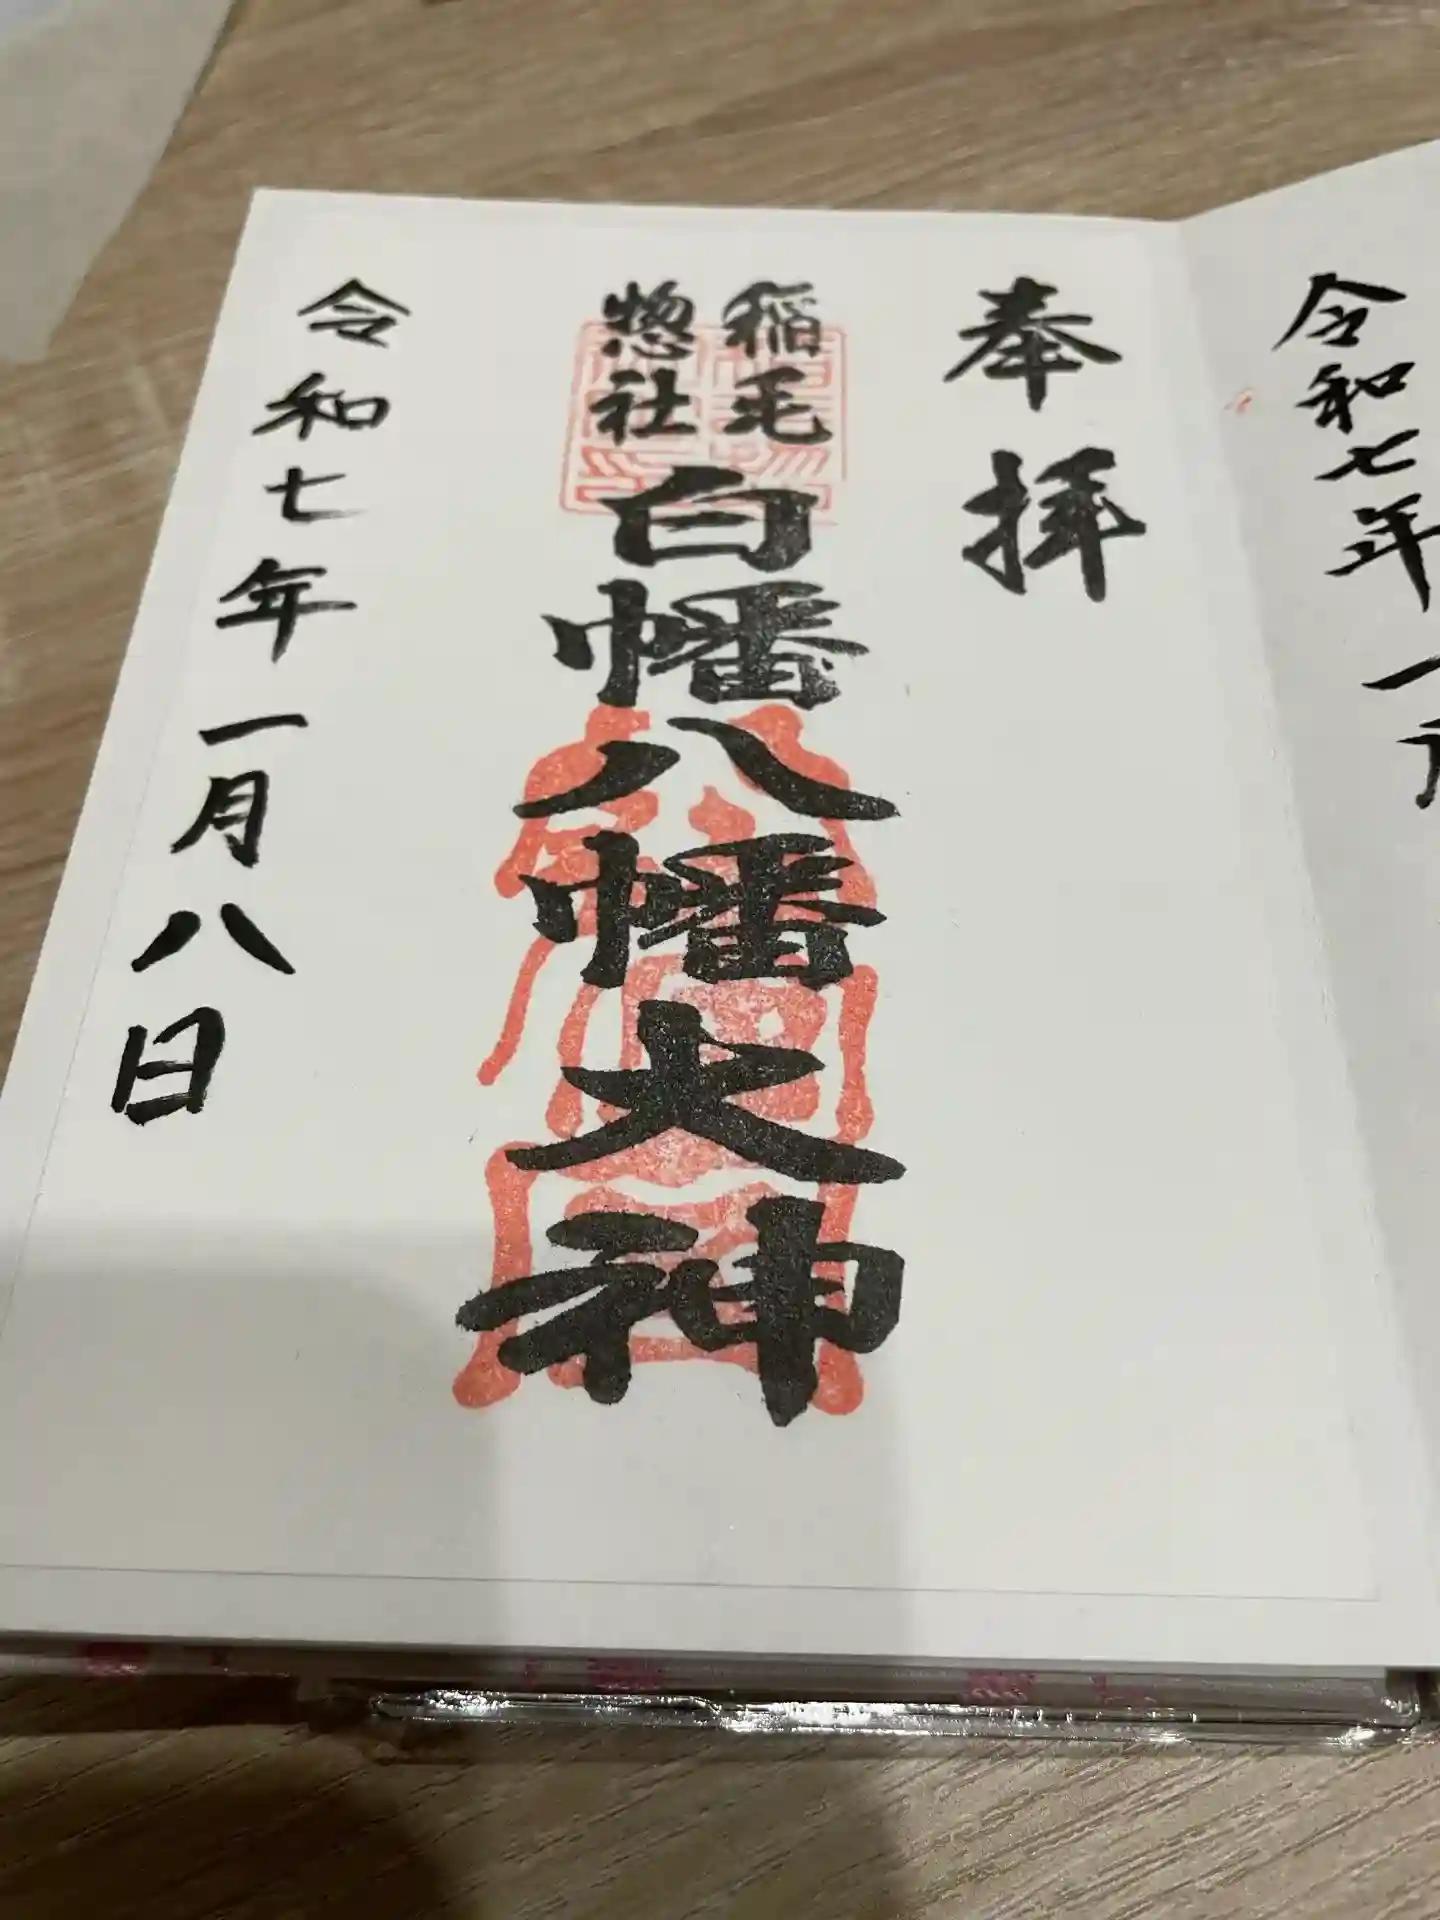 令和七年一
奉拝
稲毛
惣社
白幡八幡大神
令和七年一月八日